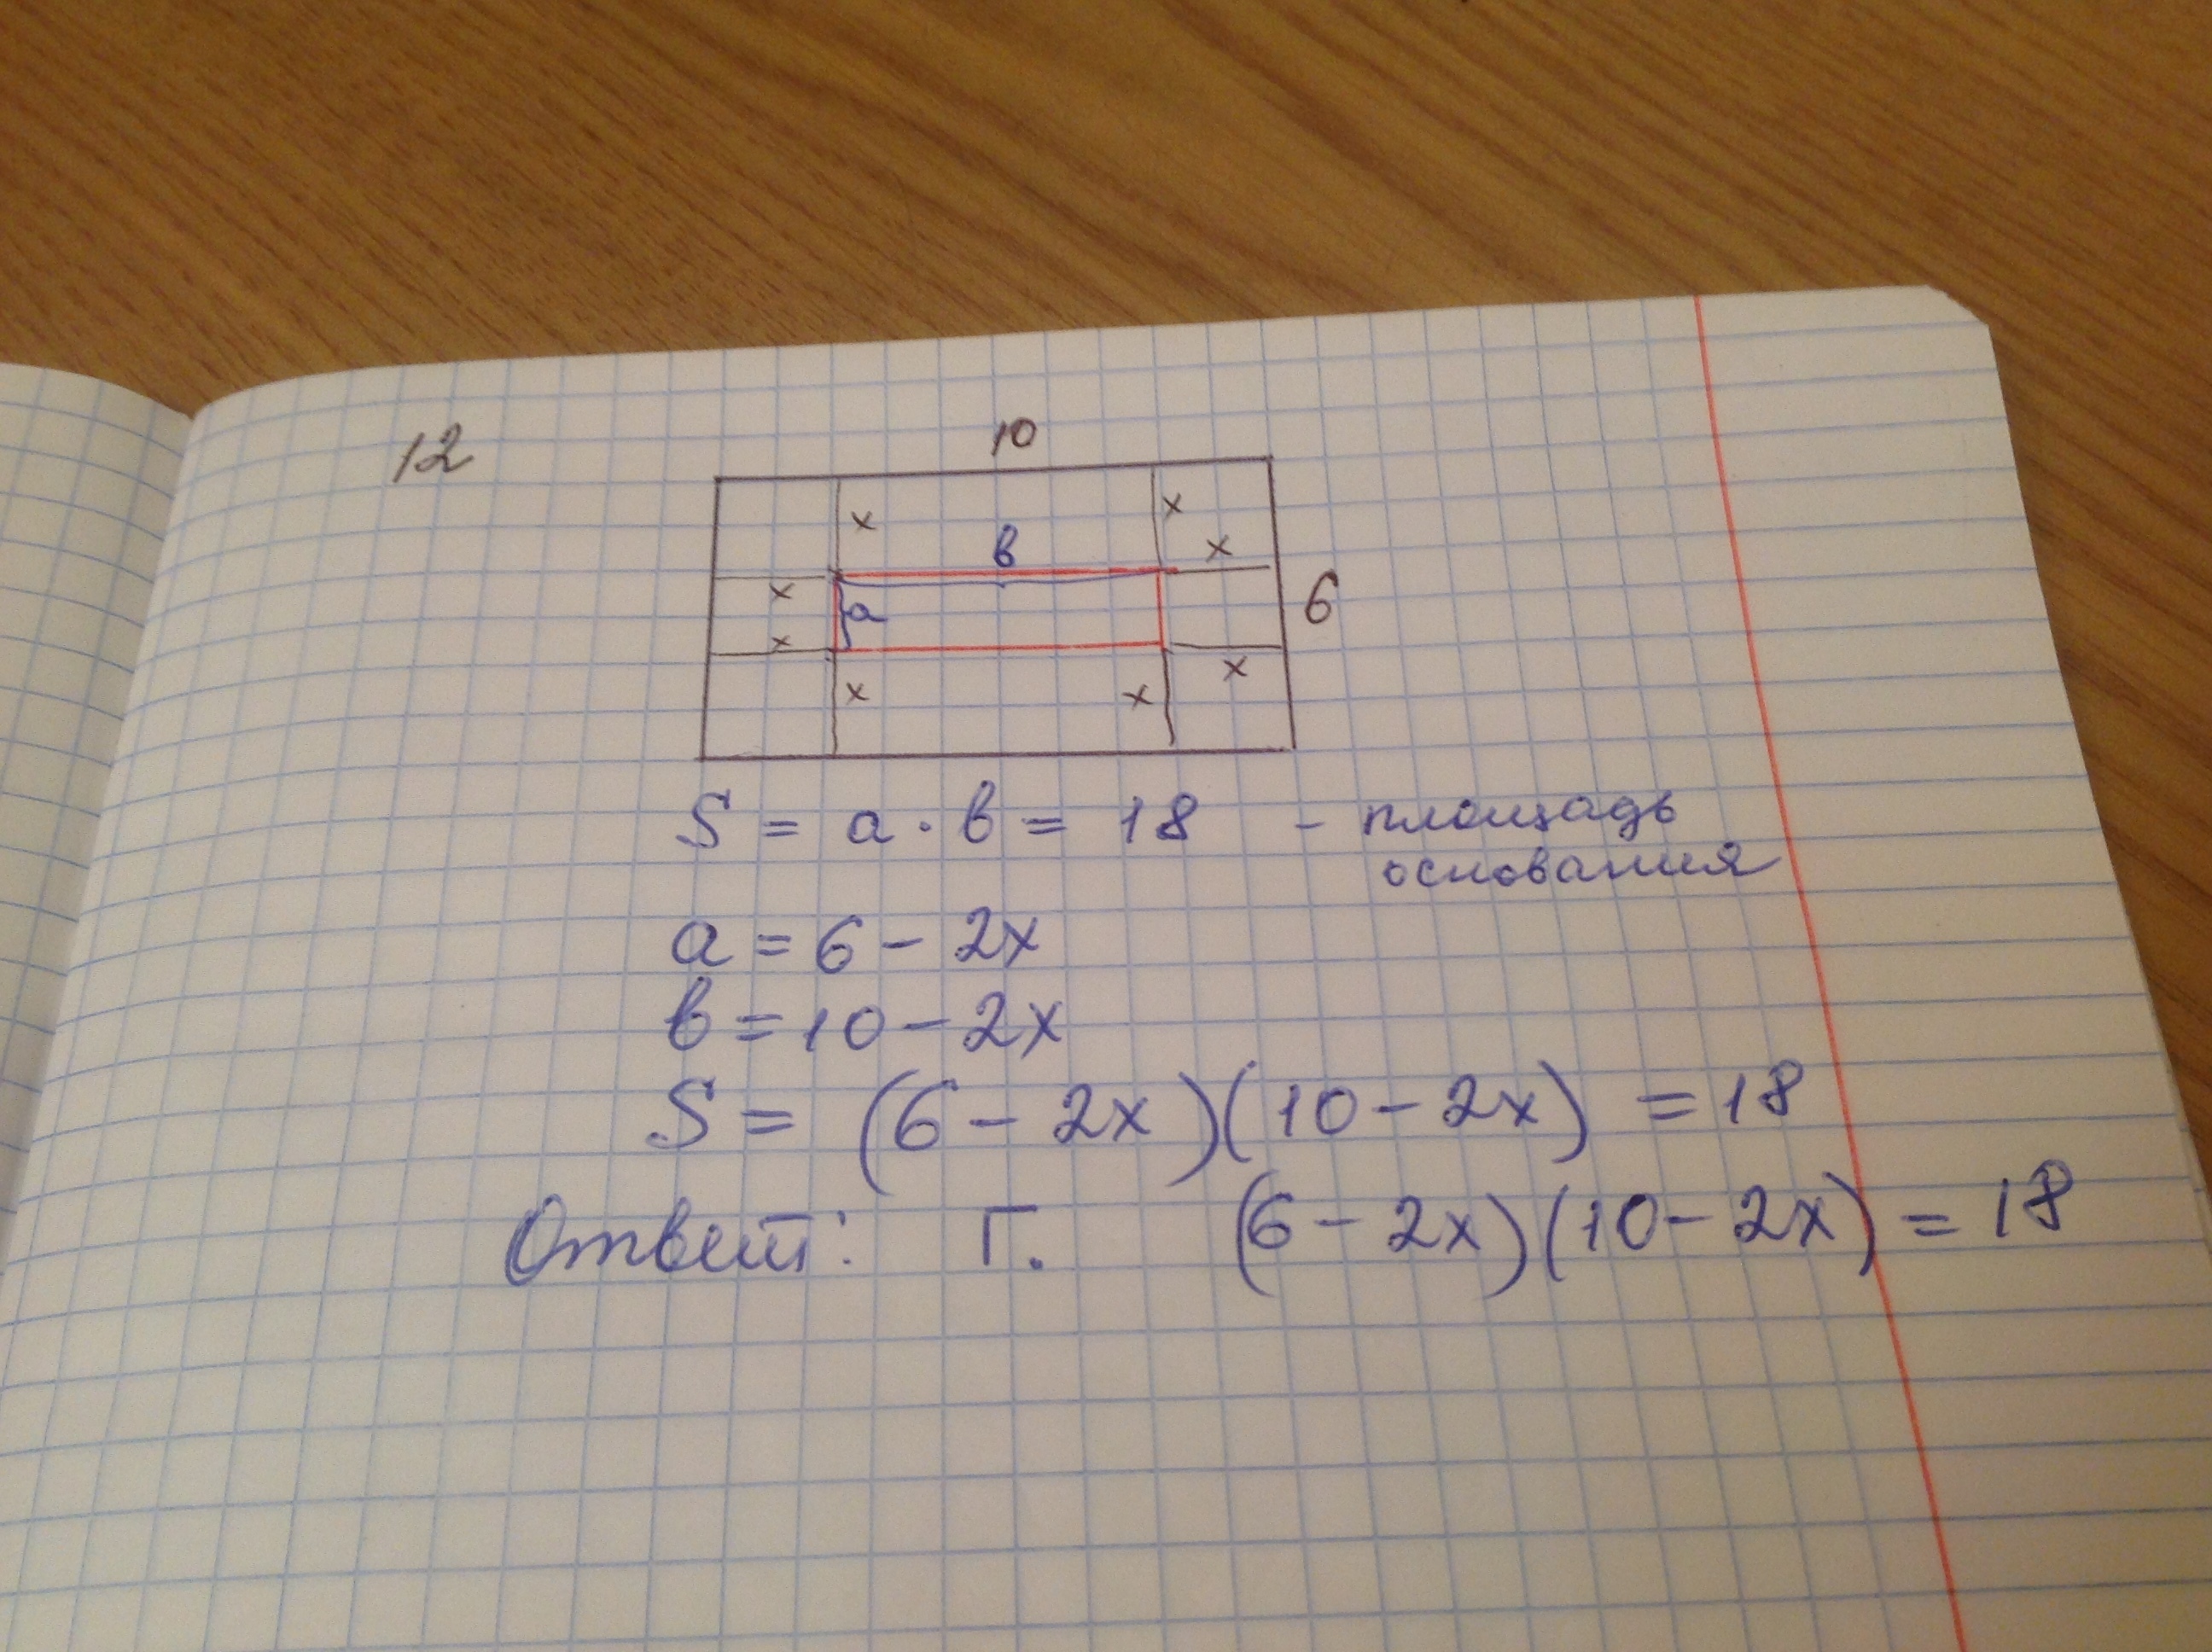 12
10
x x
в x
x
a 6
x
x
x x
S = a · в = 18 - площадь
основания
a = 6 - 2x
в = 10 - 2x
S = (6 - 2x)(10 - 2x) = 18
Ответ: Г. (6 - 2x)(10 - 2x) = 18